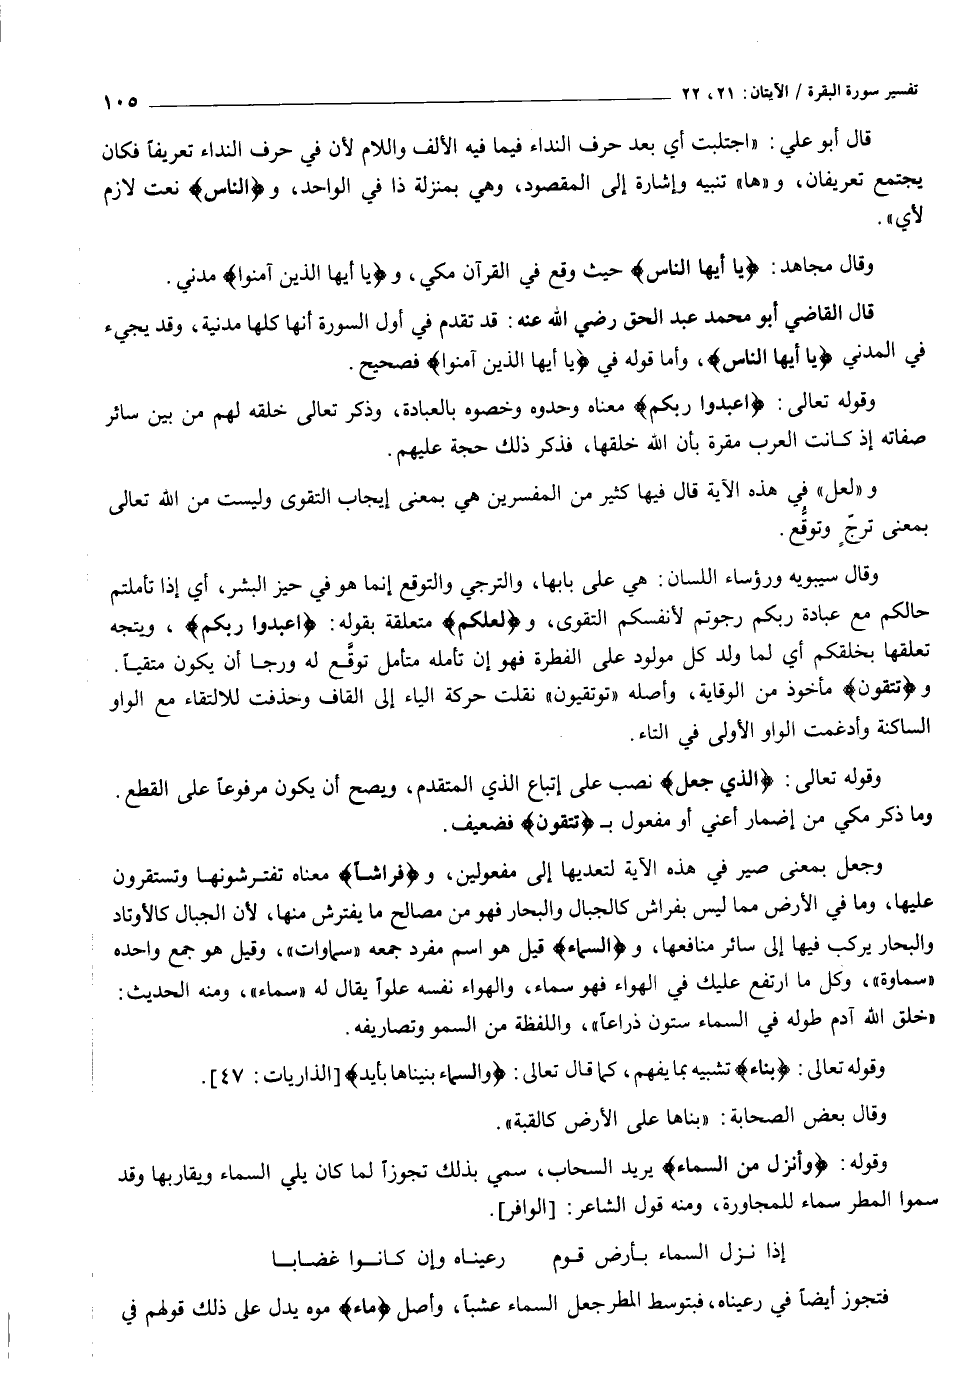 تفسير سورة البقرة / الآيتان: ٢١، ٢٢ ١٠٥
قال أبو علي: «اجتلبت أي بعد حرف النداء فيما فيه الألف واللام لأن في حرف النداء تعريفاً فكان
يجتمع تعريفان، و«ها» تنبيه وإشارة إلى المقصود، وهي بمنزلة ذا في الواحد، و﴿الناس﴾ نعت لازم
لأي».
وقال مجاهد: ﴿يا أيها الناس﴾ حيث وقع في القرآن مكي، و﴿يا أيها الذين آمنوا﴾ مدني.
قال القاضي أبو محمد عبد الحق رضي الله عنه: قد تقدم في أول السورة أنها كلها مدنية، وقد يجيء
في المدني ﴿يا أيها الناس﴾، وأما قوله في ﴿يا أيها الذين آمنوا﴾ فصحيح.
وقوله تعالى: ﴿اعبدوا ربكم﴾ معناه وحدوه وخصوه بالعبادة، وذكر تعالى خلقه لهم من بين سائر
صفاته إذ كانت العرب مقرة بأن الله خلقها، فذكر ذلك حجة عليهم.
و«لعل» في هذه الآية قال فيها كثير من المفسرين هي بمعنى إيجاب التقوى وليست من الله تعالى
بمعنى ترجّ وتوقُّع.
وقال سيبويه ورؤساء اللسان: هي على بابها، والترجي والتوقع إنما هو في حيز البشر، أي إذا تأملتم
حالكم مع عبادة ربكم رجوتم لأنفسكم التقوى، و﴿لعلكم﴾ متعلقة بقوله: ﴿اعبدوا ربكم﴾، ويتجه
تعلقها بخلقكم أي لما ولد كل مولود على الفطرة فهو إن تأمله متأمل توقَّع له ورجا أن يكون متقياً.
و﴿تتقون﴾ مأخوذ من الوقاية، وأصله «توتقيون» نقلت حركة الياء إلى القاف وحذفت للالتقاء مع الواو
الساكنة وأدغمت الواو الأولى في التاء.
وقوله تعالى: ﴿الذي جعل﴾ نصب على إتباع الذي المتقدم، ويصح أن يكون مرفوعاً على القطع.
وما ذكر مكي من إضمار أعني أو مفعول بـ ﴿تتقون﴾ فضعيف.
وجعل بمعنى صير في هذه الآية لتعديها إلى مفعولين، و﴿فراشاً﴾ معناه تفترشونها وتستقرون
عليها، وما في الأرض مما ليس بفراش كالجبال والبحار فهو من مصالح ما يفترش منها، لأن الجبال كالأوتاد
والبحار يركب فيها إلى سائر منافعها، و﴿السماء﴾ قيل هو اسم مفرد جمعه «سماوات»، وقيل هو جمع واحده
«سماوة»، وكل ما ارتفع عليك في الهواء فهو سماء، والهواء نفسه علواً يقال له «سماء»، ومنه الحديث:
«خلق الله آدم طوله في السماء ستون ذراعاً»، واللفظة من السمو وتصاريفه.
وقوله تعالى: ﴿بناء﴾ تشبيه بما يفهم، كما قال تعالى: ﴿والسماء بنيناها بأيد﴾ [الذاريات: ٤٧].
وقال بعض الصحابة: «بناها على الأرض كالقبة».
وقوله: ﴿وأنزل من السماء﴾ يريد السحاب، سمي بذلك تجوزاً لما كان يلي السماء ويقاربها وقد
سموا المطر سماء للمجاورة، ومنه قول الشاعر: [الوافر].
إذا نـزل السماء بـأرض قـوم رعينـاه وإن كـانـوا غضـابـا
فتجوز أيضاً في رعيناه، فبتوسط المطر جعل السماء عشباً، وأصل ﴿ماء﴾ موه يدل على ذلك قولهم في